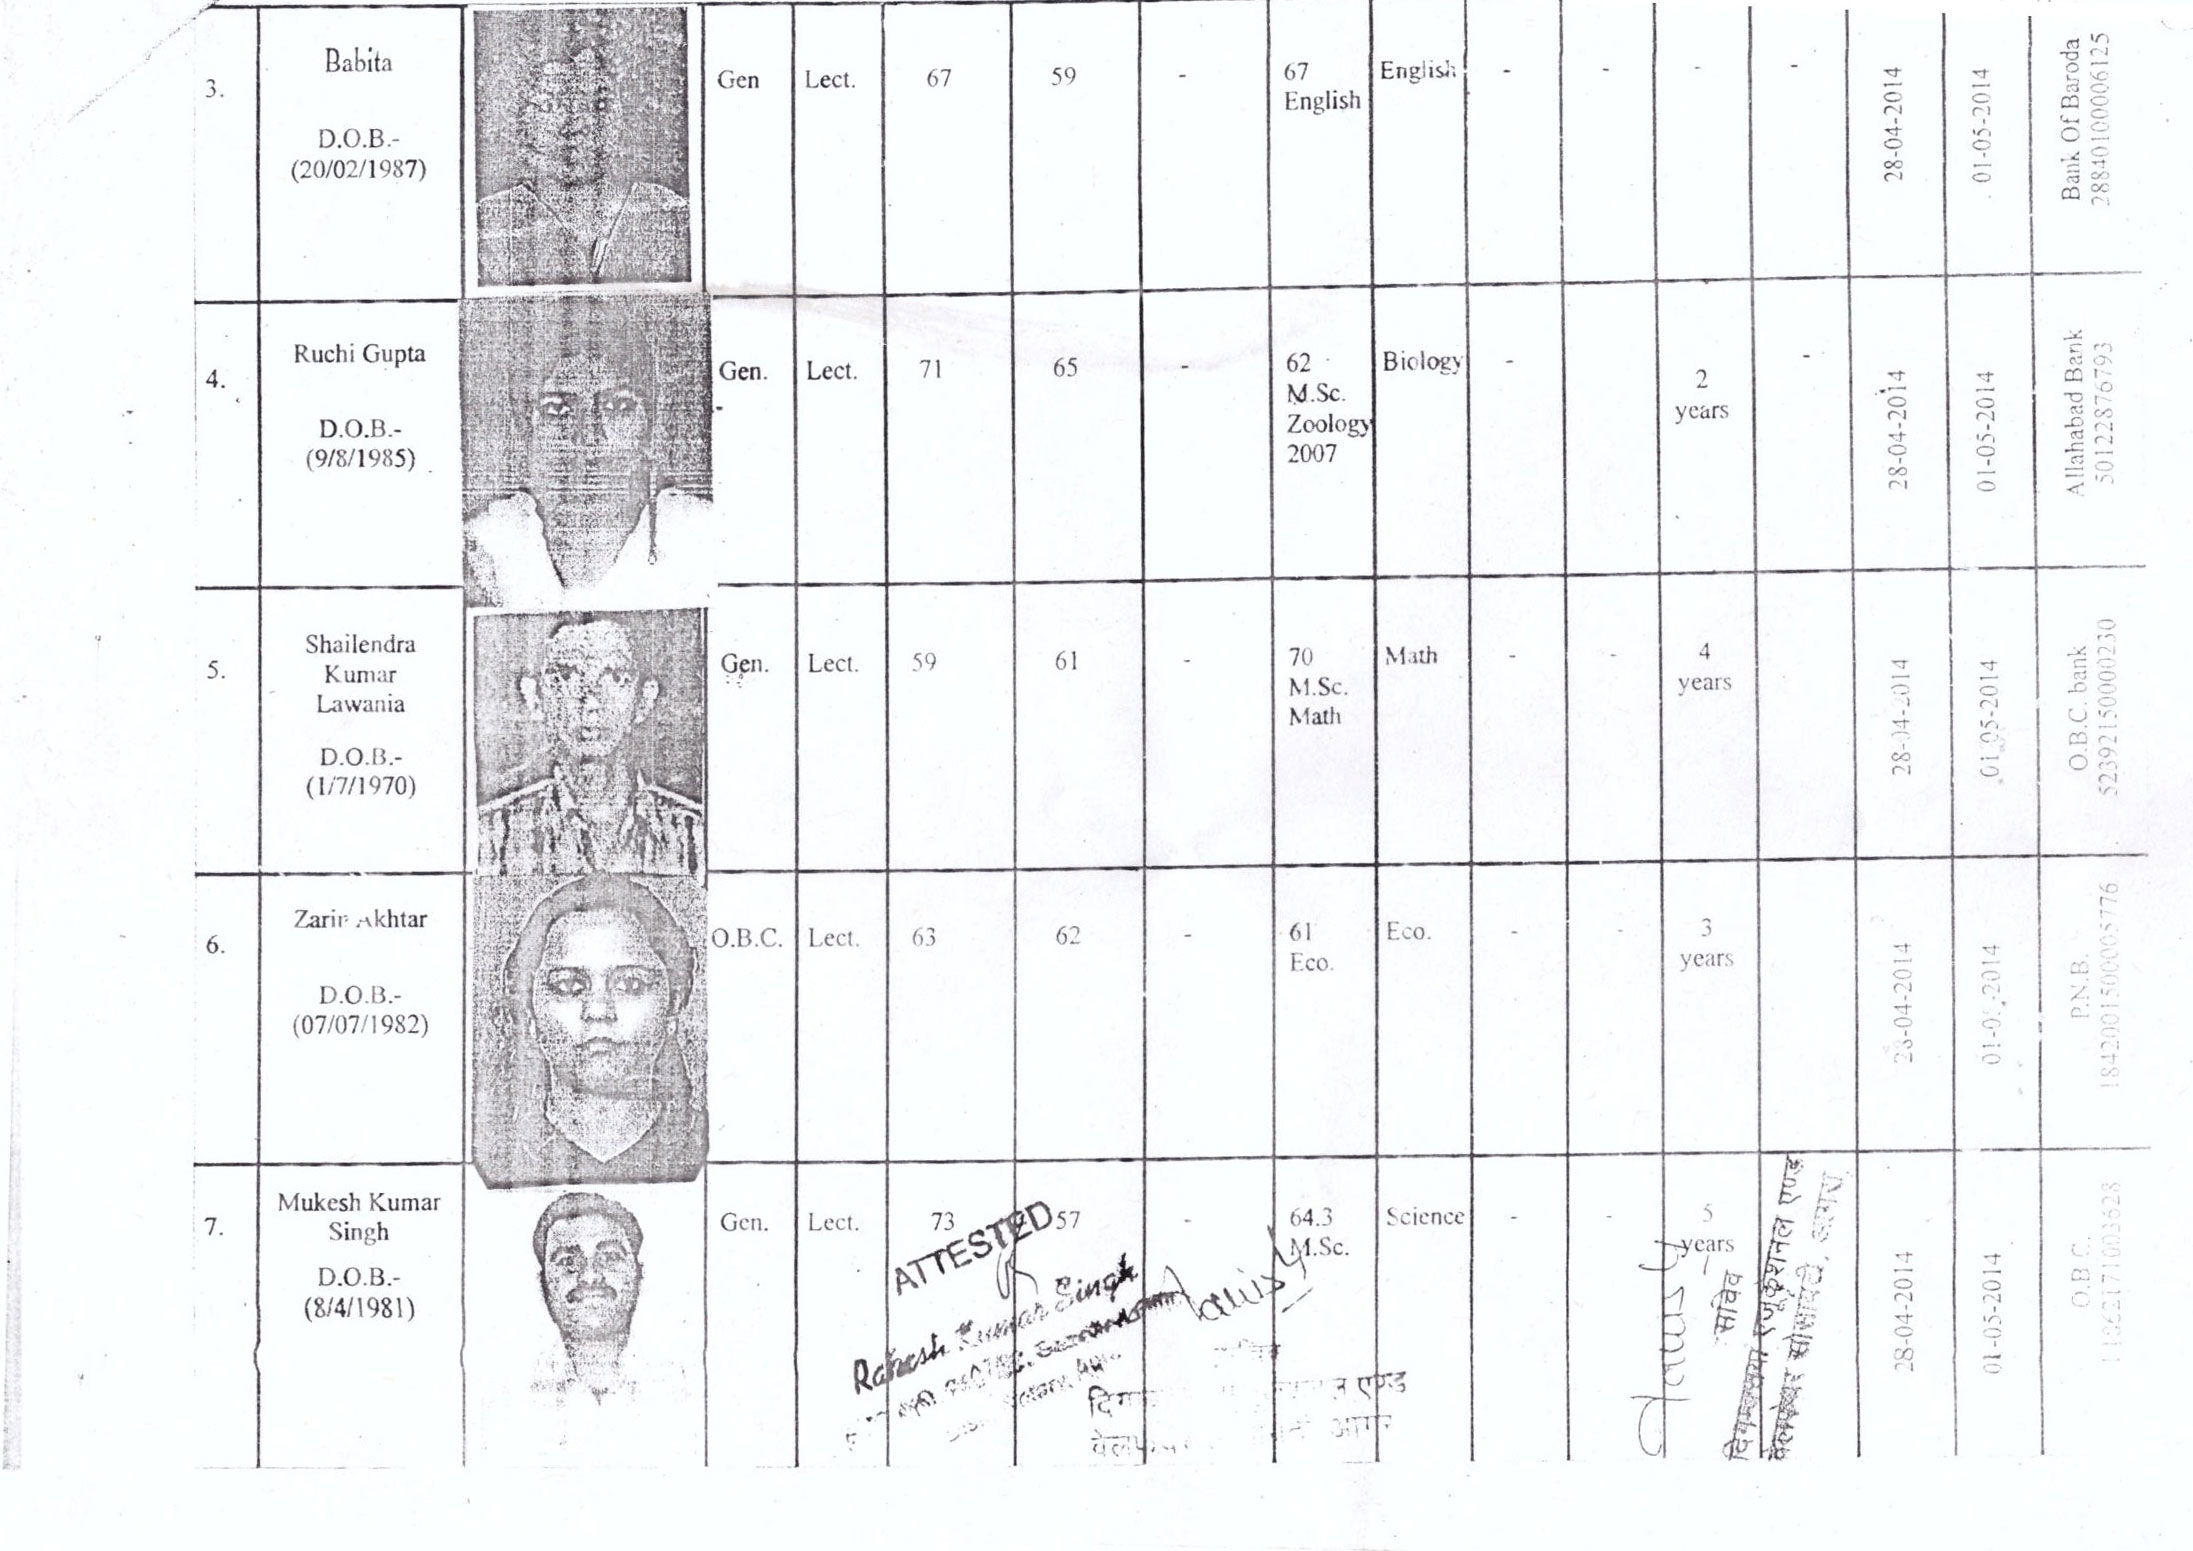 3.
Babita
D.O.B.-
(20/02/1987)
Gen
Lect.
67
59
-
67
English
English
-
-
-
-
28-04-2014
01-05-2014
Bank Of Baroda
28840100006125
4.
Ruchi Gupta
D.O.B.-
(9/8/1985)
Gen.
Lect.
71
65
-
62
M.Sc.
Zoology
2007
Biology
-
2
years
-
28-04-2014
01-05-2014
Allahabad Bank
50122876793
5.
Shailendra
Kumar
Lawania
D.O.B.-
(1/7/1970)
Gen.
Lect.
59
61
-
70
M.Sc.
Math
Math
-
-
4
years
28-04-2014
01-05-2014
O.B.C. bank
52392150000230
6.
Zarin Akhtar
D.O.B.-
(07/07/1982)
O.B.C.
Lect.
63
62
-
61
Eco.
Eco.
-
-
3
years
28-04-2014
P.N.B.
7.
Mukesh Kumar
Singh
D.O.B.-
(8/4/1981)
Gen.
Lect.
73
57
-
64.3
M.Sc.
Science
-
-
5
years
28-04-2014
01-05-2014
O.B.C.
ATTESTED
Rakesh Kumar Singh
एण्ड
सचिव
एजुकेशनल एण्ड
वेलफेयर सोसायटी, आगरा